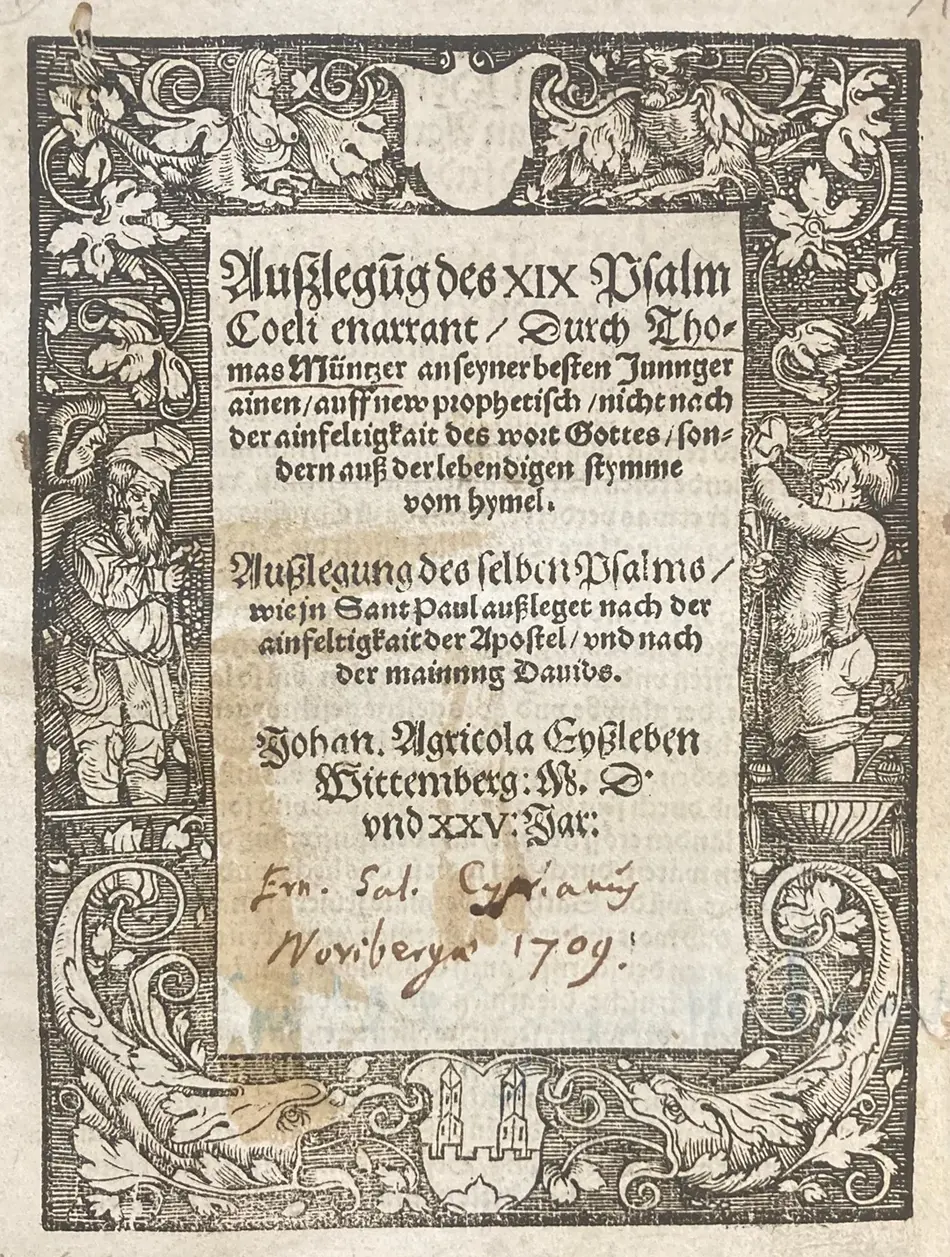 Außlegūg des XIX Psalm
Coeli enarrant / Durch Tho-
mas Müntzer an seyner besten Junnger
ainen / auff new prophetisch / nicht nach
der ainfeltigkait des wort Gottes / son-
dern auß der lebendigen stymme
vom hymel.
Außlegung des selben Psalms /
wie jn Sant Paul außleget nach der
ainfeltigkait der Apostel / vnd nach
der mainnng Dauids.
Johan. Agricola Eyßleben
Wittemberg: M. D.
vnd XXV: Jar:
Ern. Sal. Cyprianus
Noribergæ 1709.